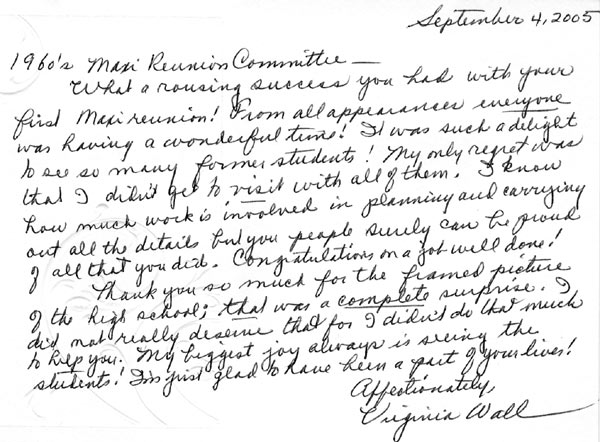 September 4, 2005
1960's Maxi Reunion Committee —
What a rousing success you had with your
first Maxi reunion! From all appearances everyone
was having a wonderful time! It was such a delight
to see so many former students! My only regret was
that I didn't get to visit with all of them. I know
how much work is involved in planning and carrying
out all the details but you people surely can be proud
of all that you did. Congratulations on a job well done!
Thank you so much for the framed picture
of the high school; that was a complete surprise. I
did not really deserve that for I didn't do that much
to help you. My biggest joy always is seeing the
students! I'm just glad to have been a part of your lives!
Affectionately,
Virginia Wall